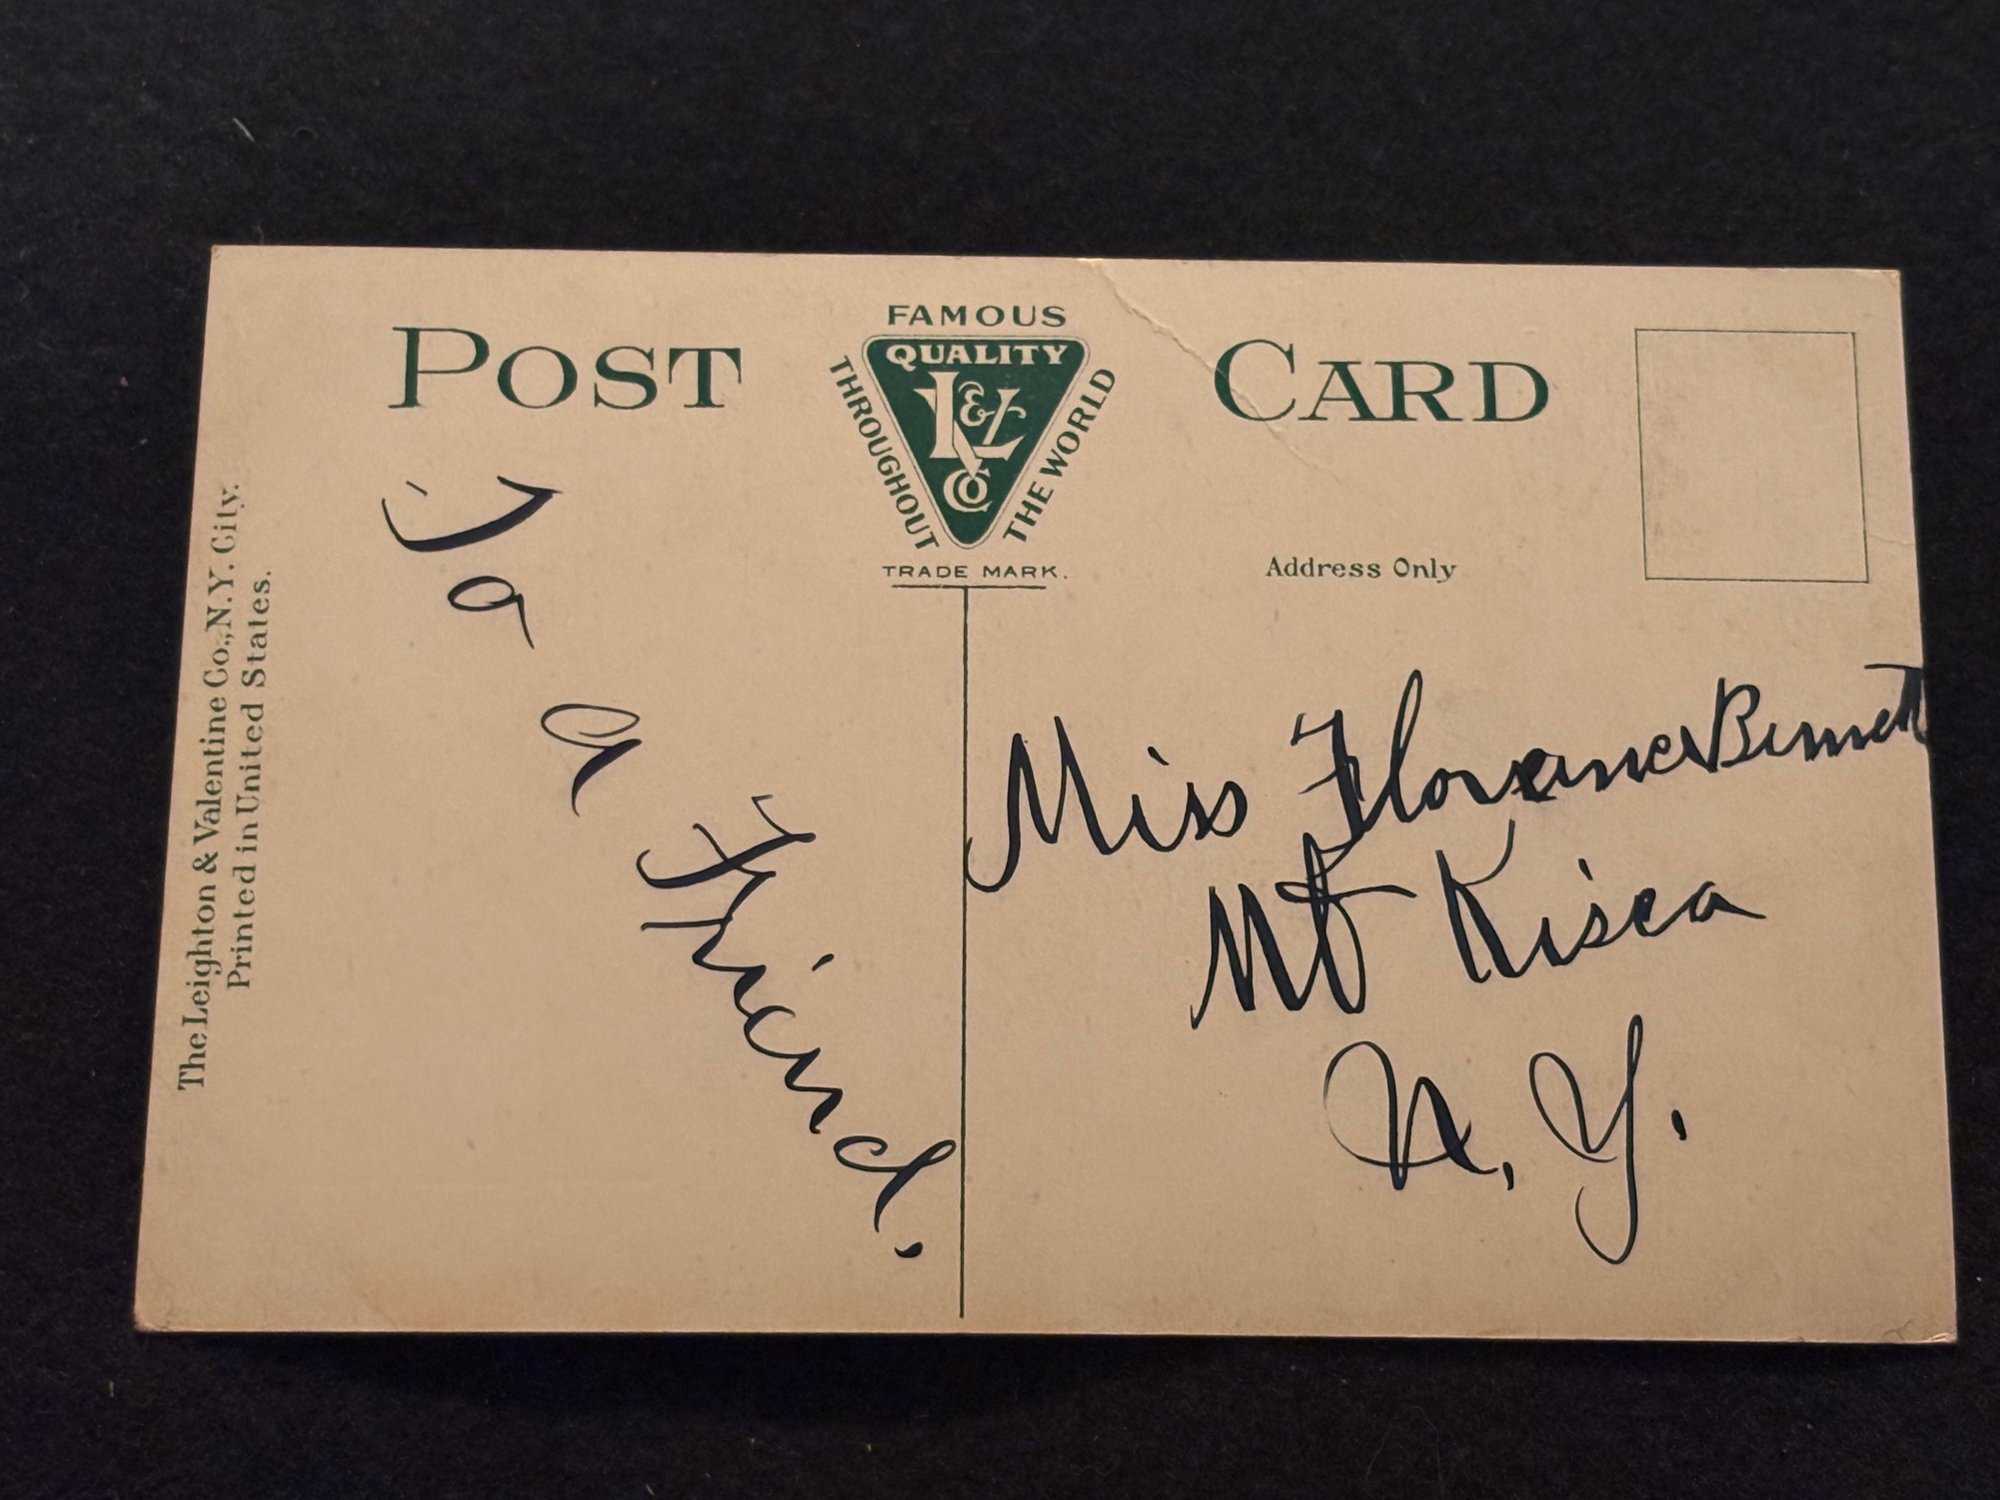 POST CARD
FAMOUS
QUALITY
THROUGHOUT
THE WORLD
L & V
Co
TRADE MARK.
Address Only
The Leighton & Valentine Co., N.Y. City.
Printed in United States.
To a Friend.
Miss Florence Bennett
Mt Kisca
N. Y.